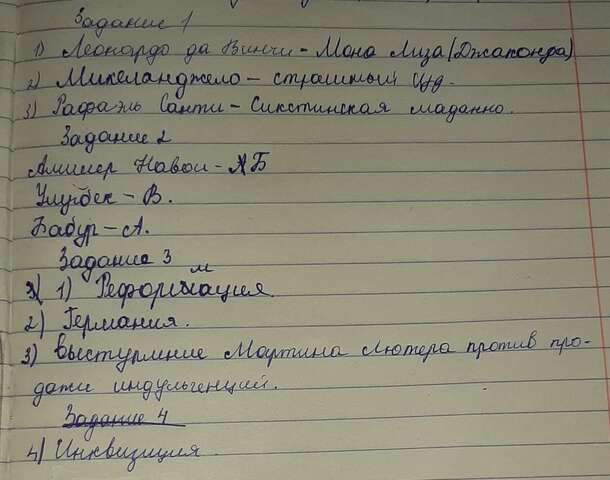 Задание 1
1) Леонардо да Винчи - Мона Лиза (Джаконда)
2) Микеланджело - страшный суд.
3) Рафаэль Санти - Сикстинская маданна.
Задание 2
Алишер Навои - Б
Улугбек - В.
Бабур - А.
Задание 3
1) Реформация.
2) Германия.
3) Выступление Мартина Лютера против про-
дажи индульгенций.
Задание 4
4) Инквизиция.